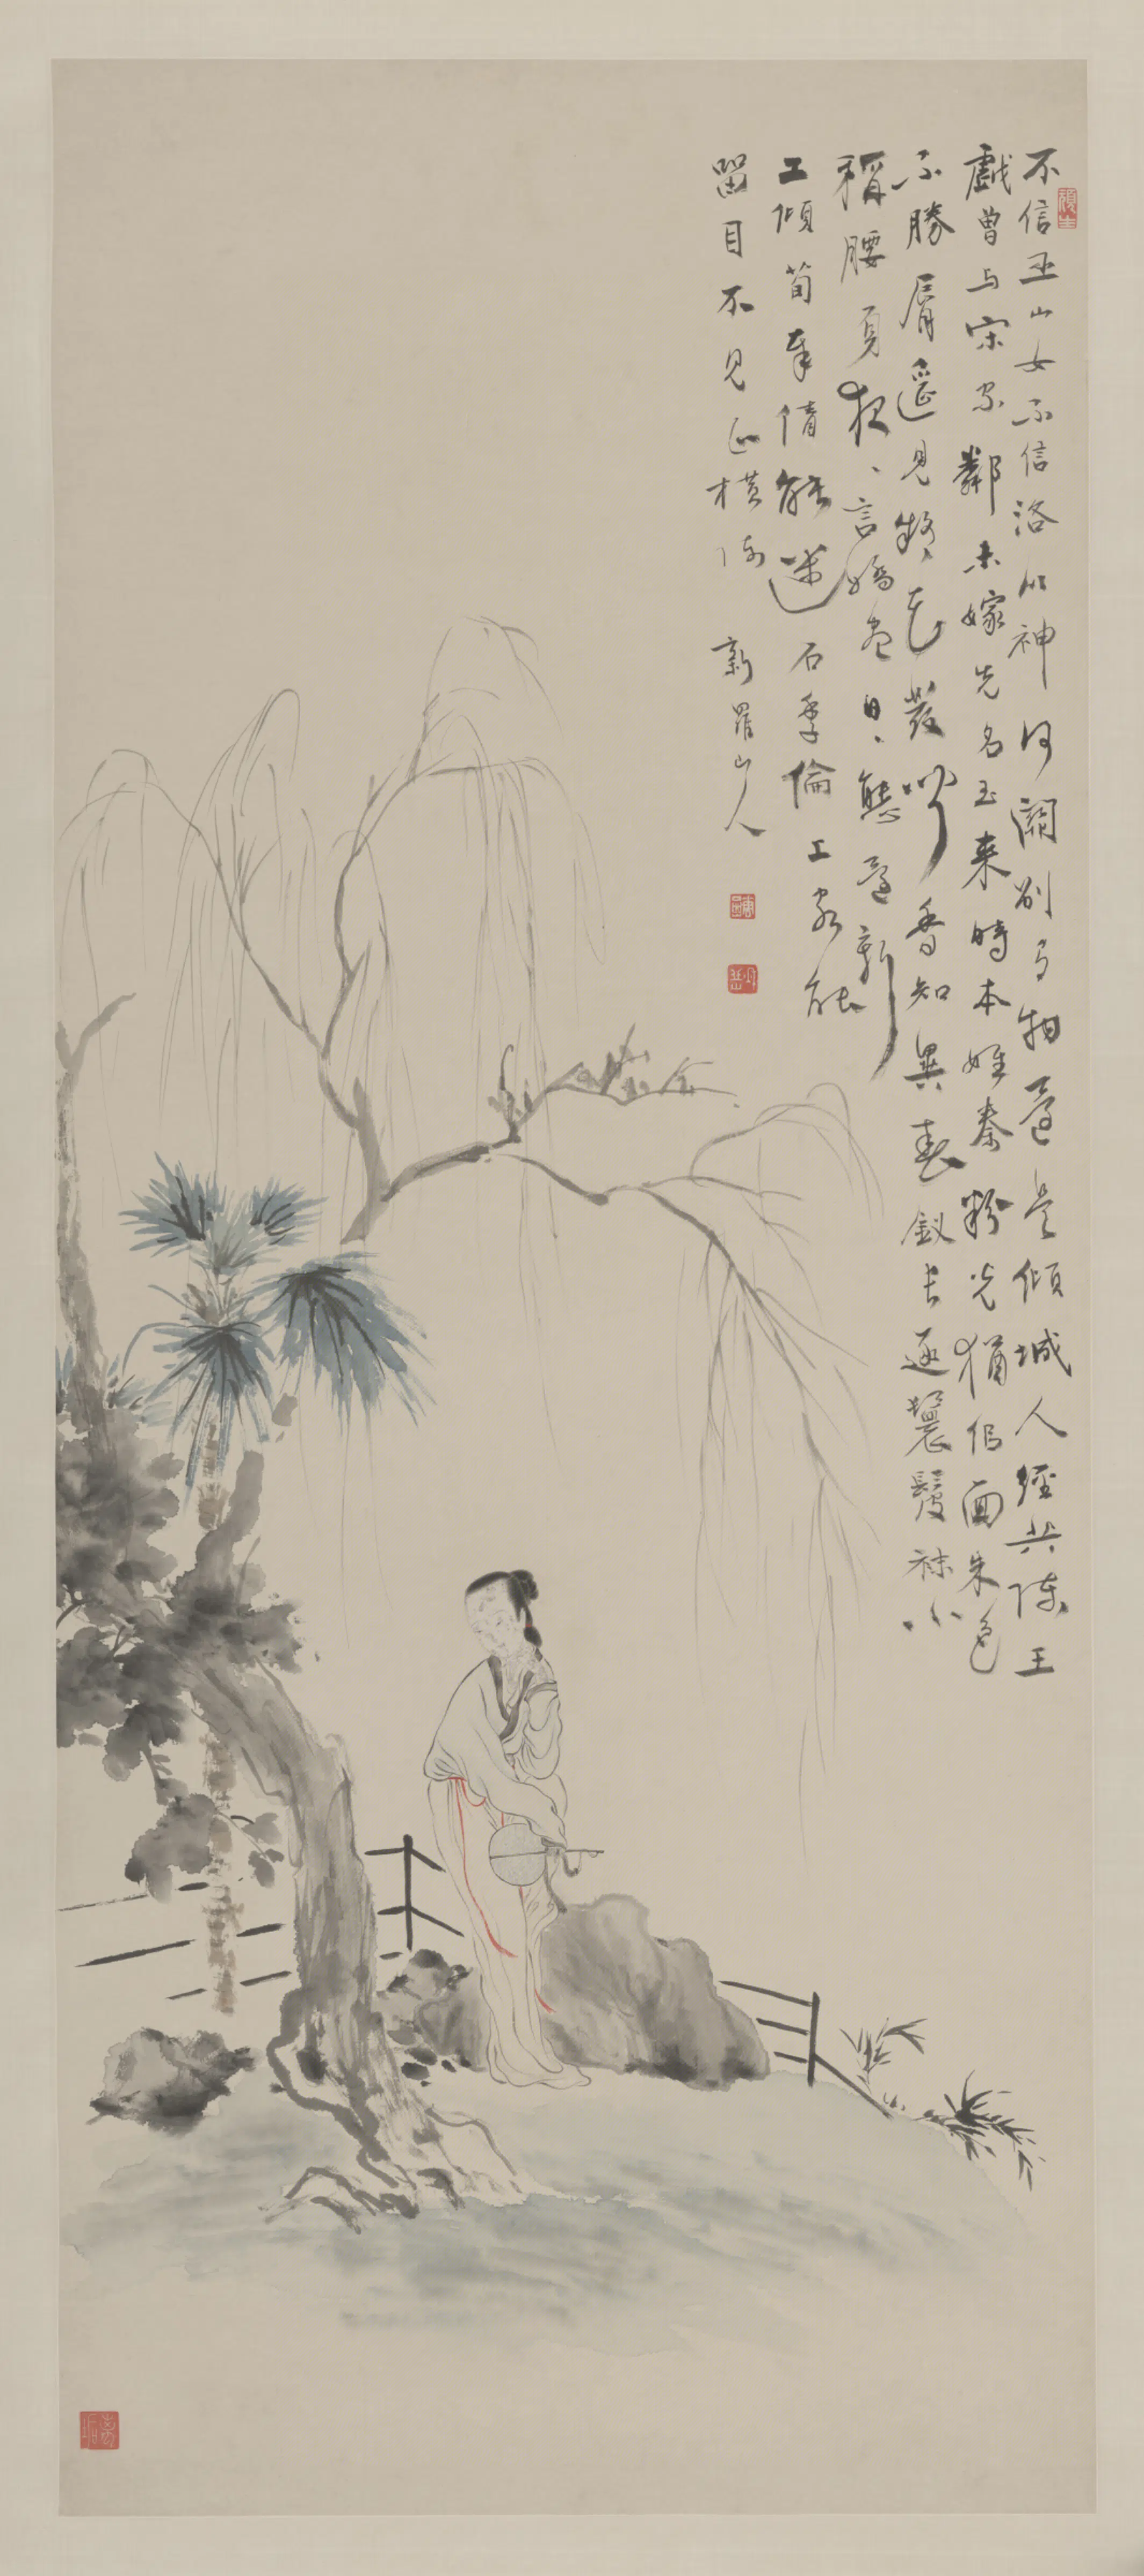 不信巫山女不信洛川神何關別有物還是傾城人經共陳王
戲曾与宋家鄰未嫁先名玉来時本姓秦粉光猶佀面朱色
不勝脣遥見疑花發聞香知異春釵長逐鬟髮袜小
稱腰身夜、言嬌盡日、態還新
工傾荀奉倩能迷石季倫上客能
留目不見正橫陳 新羅山人